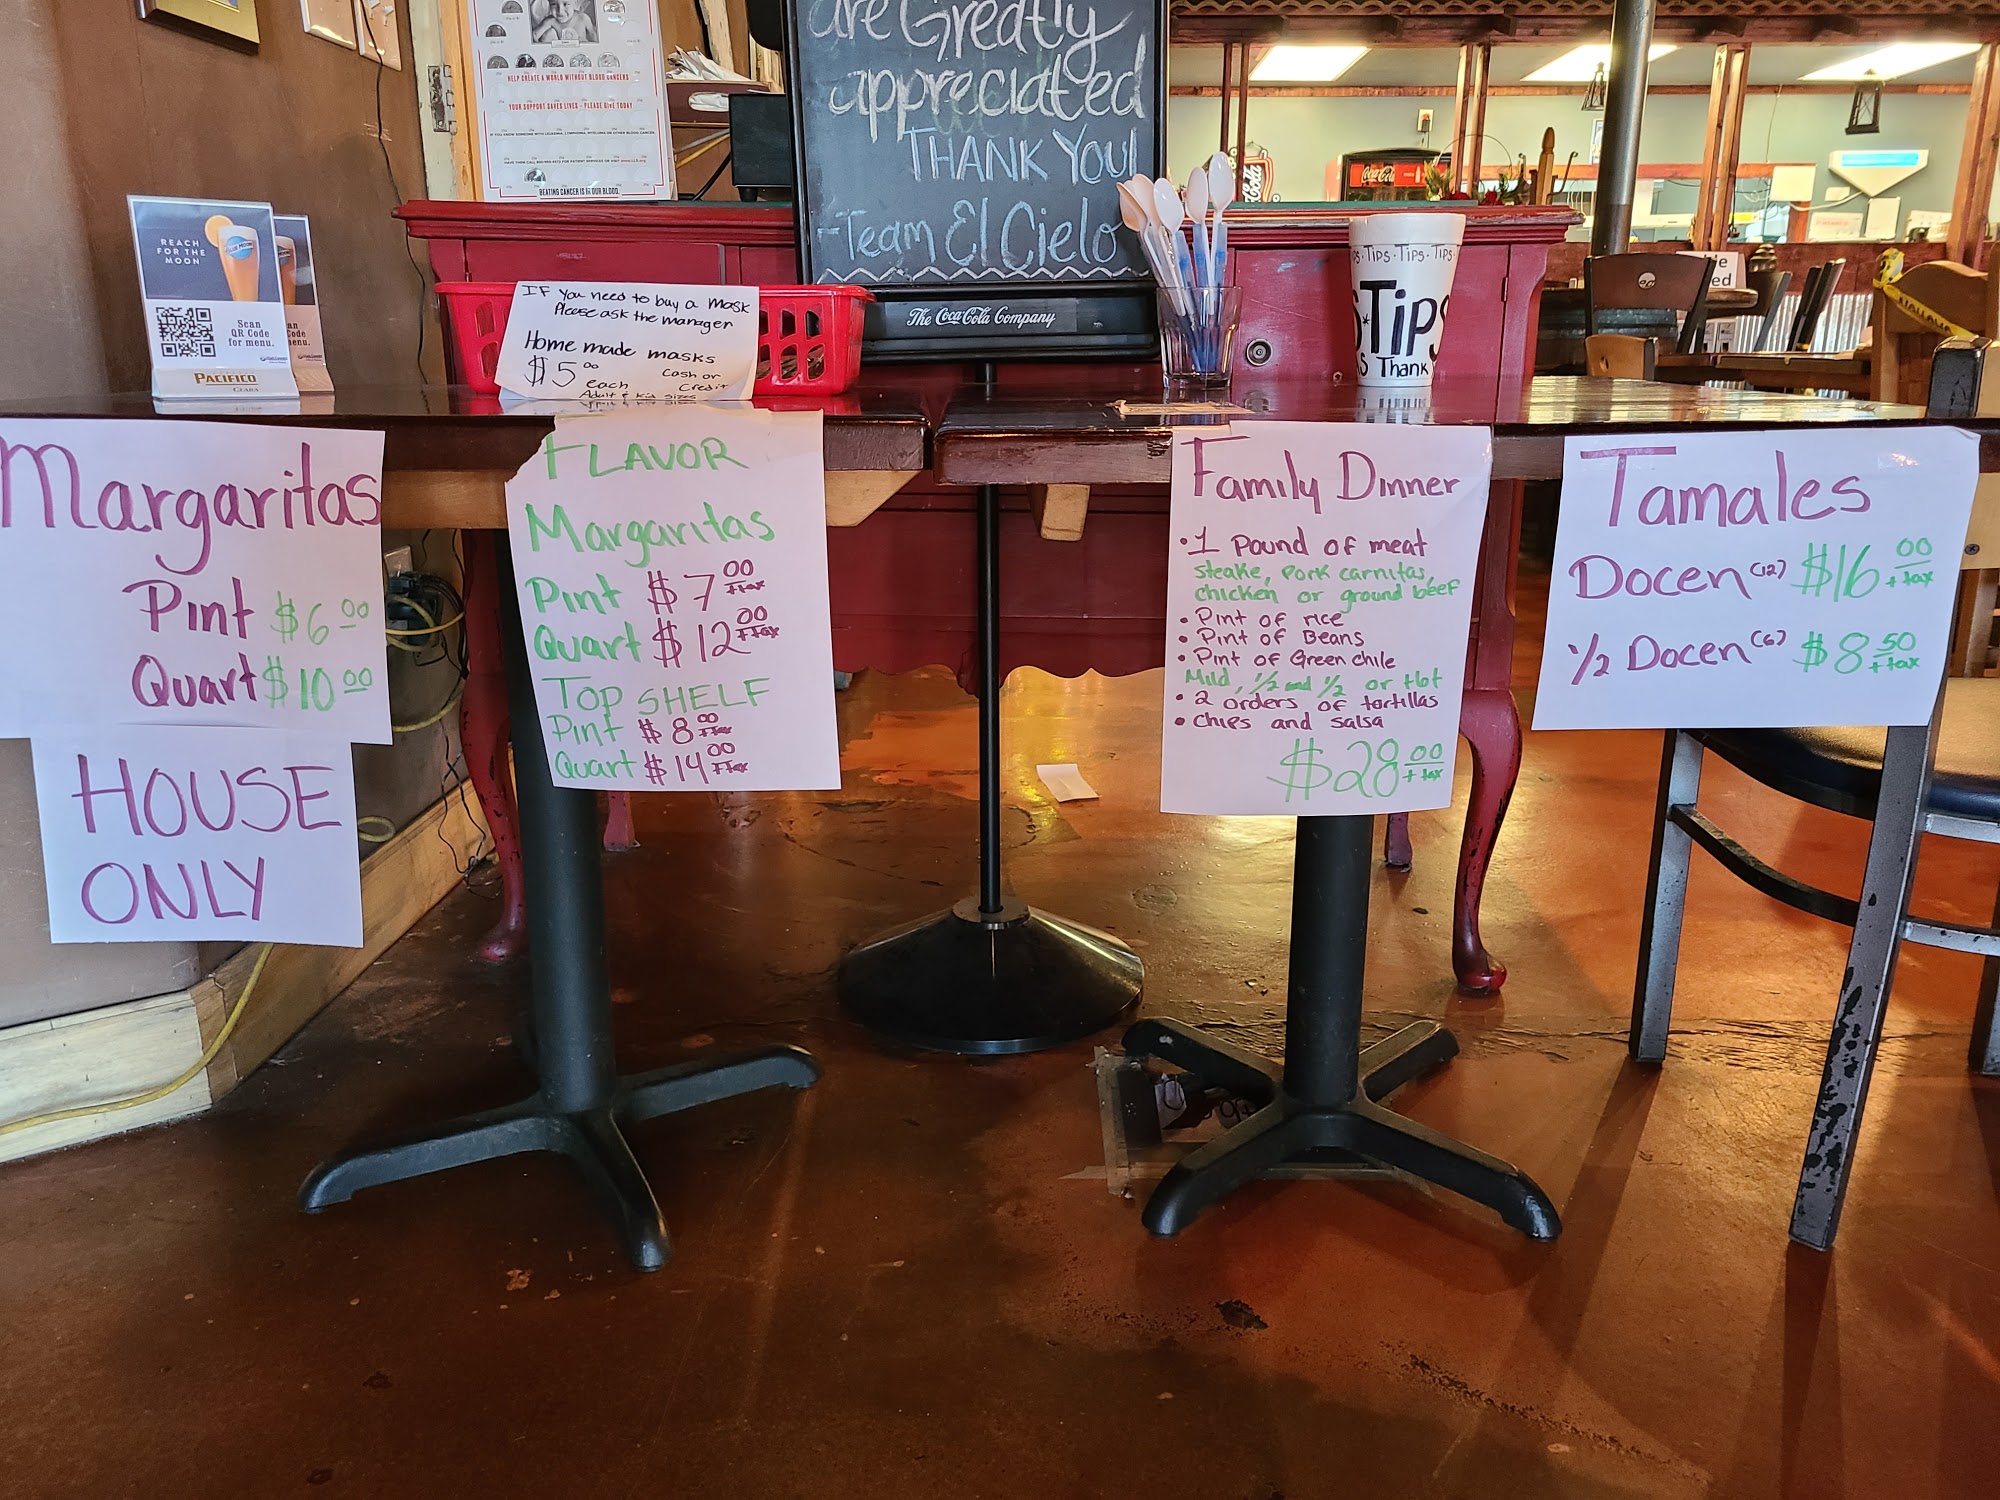 are Greatly
appreciated
THANK YOU!
-Team El Cielo
The Coca-Cola Company
HELP CREATE A WORLD WITHOUT BLOOD CANCERS
YOUR SUPPORT SAVES LIVES - PLEASE GIVE TODAY
BEATING CANCER IS IN OUR BLOOD.
REACH
FOR THE
MOON
BLUE MOON
Scan
QR Code
for menu.
PACIFICO
CLARA
IF you need to buy a mask
Please ask the manager
Home made masks
$5.00 each Cash or Credit
Adult & kid sizes
Tips · Tips · Tips
Tips
Thank
Coca-Cola
Margaritas
Pint $6.00
Quart $10.00
HOUSE
ONLY
FLAVOR
Margaritas
Pint $7.00 + tax
Quart $12.00 + tax
TOP SHELF
Pint $8.00 + tax
Quart $14.00 + tax
Family Dinner
• 1 pound of meat
steake, pork carnitas,
chicken or ground beef
• Pint of rice
• Pint of Beans
• Pint of Green chile
Mild, 1/2 and 1/2 or Hot
• 2 orders of tortillas
• chips and salsa
$28.00 + tax
Tamales
Docen (12) $16.00 + tax
1/2 Docen (6) $8.50 + tax